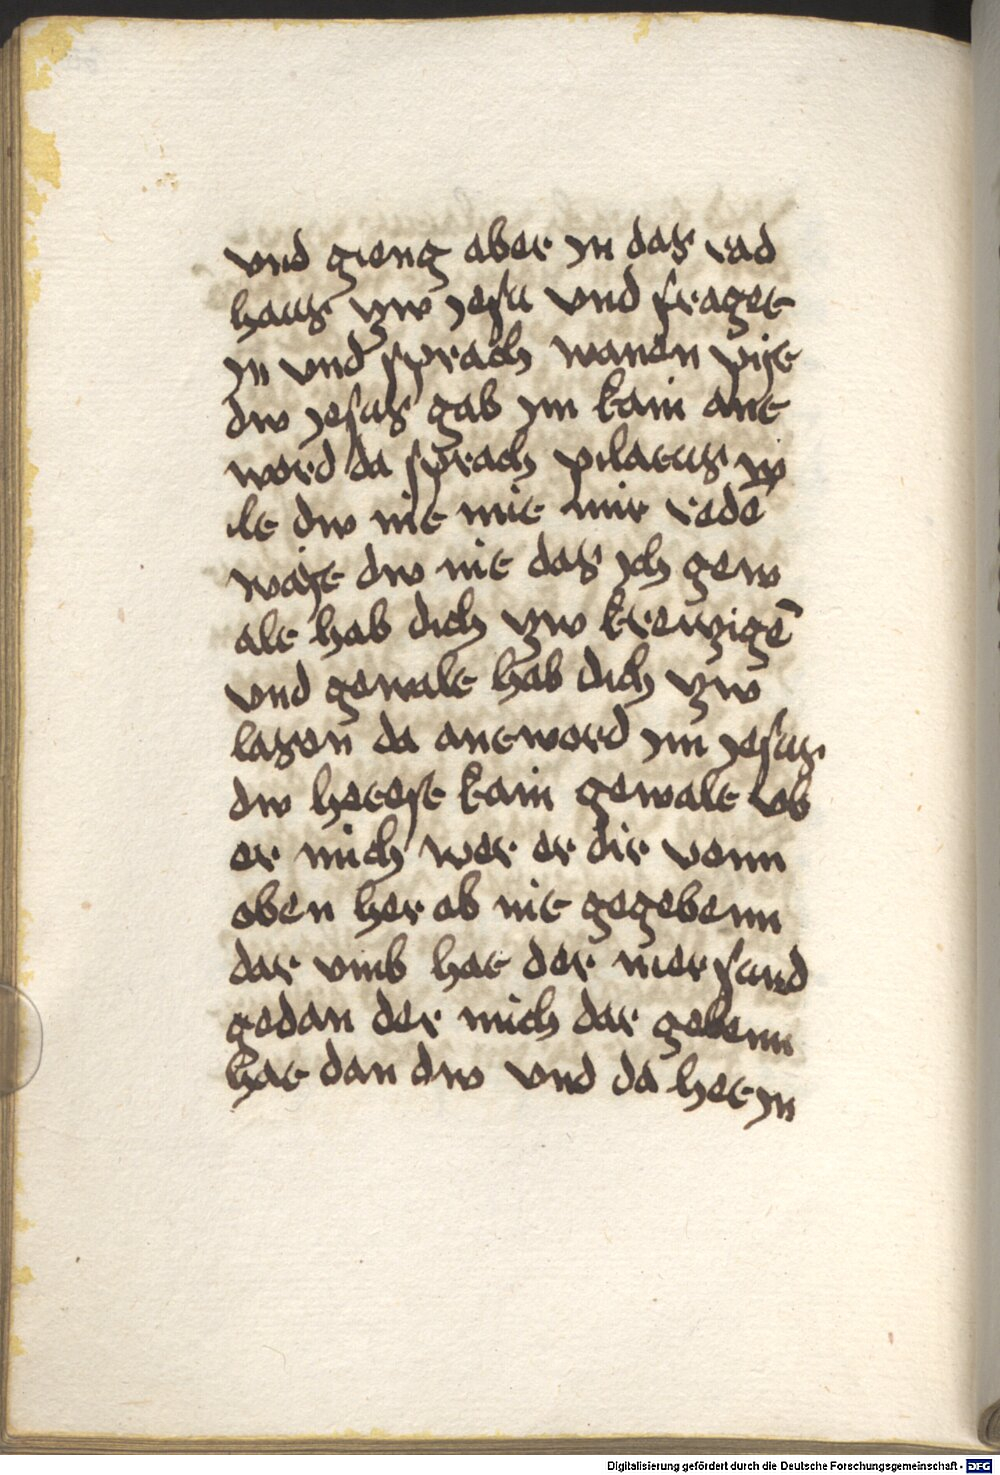 vnd gieng aber jn das rad
haus zw jesu vnd fraget
jn vnd sprach wanen pist
dw jesus gab jm kain ant
word da sprach pilatus w
ile dw nit mit mir redē
waist dw nit das jch gew
alt hab dich zw krewzigē
vnd gewalt hab dich zw
lasen da antword jm jesus
dw hetest kain gewalt vb
er mich wer er dir vonn
oben her ab nit gegebenn
dar vmb hat der mer sund
gedan der mich dar gebenn
hat dan dw vnd da het jn
Digitalisierung gefördert durch die Deutsche Forschungsgemeinschaft - DFG